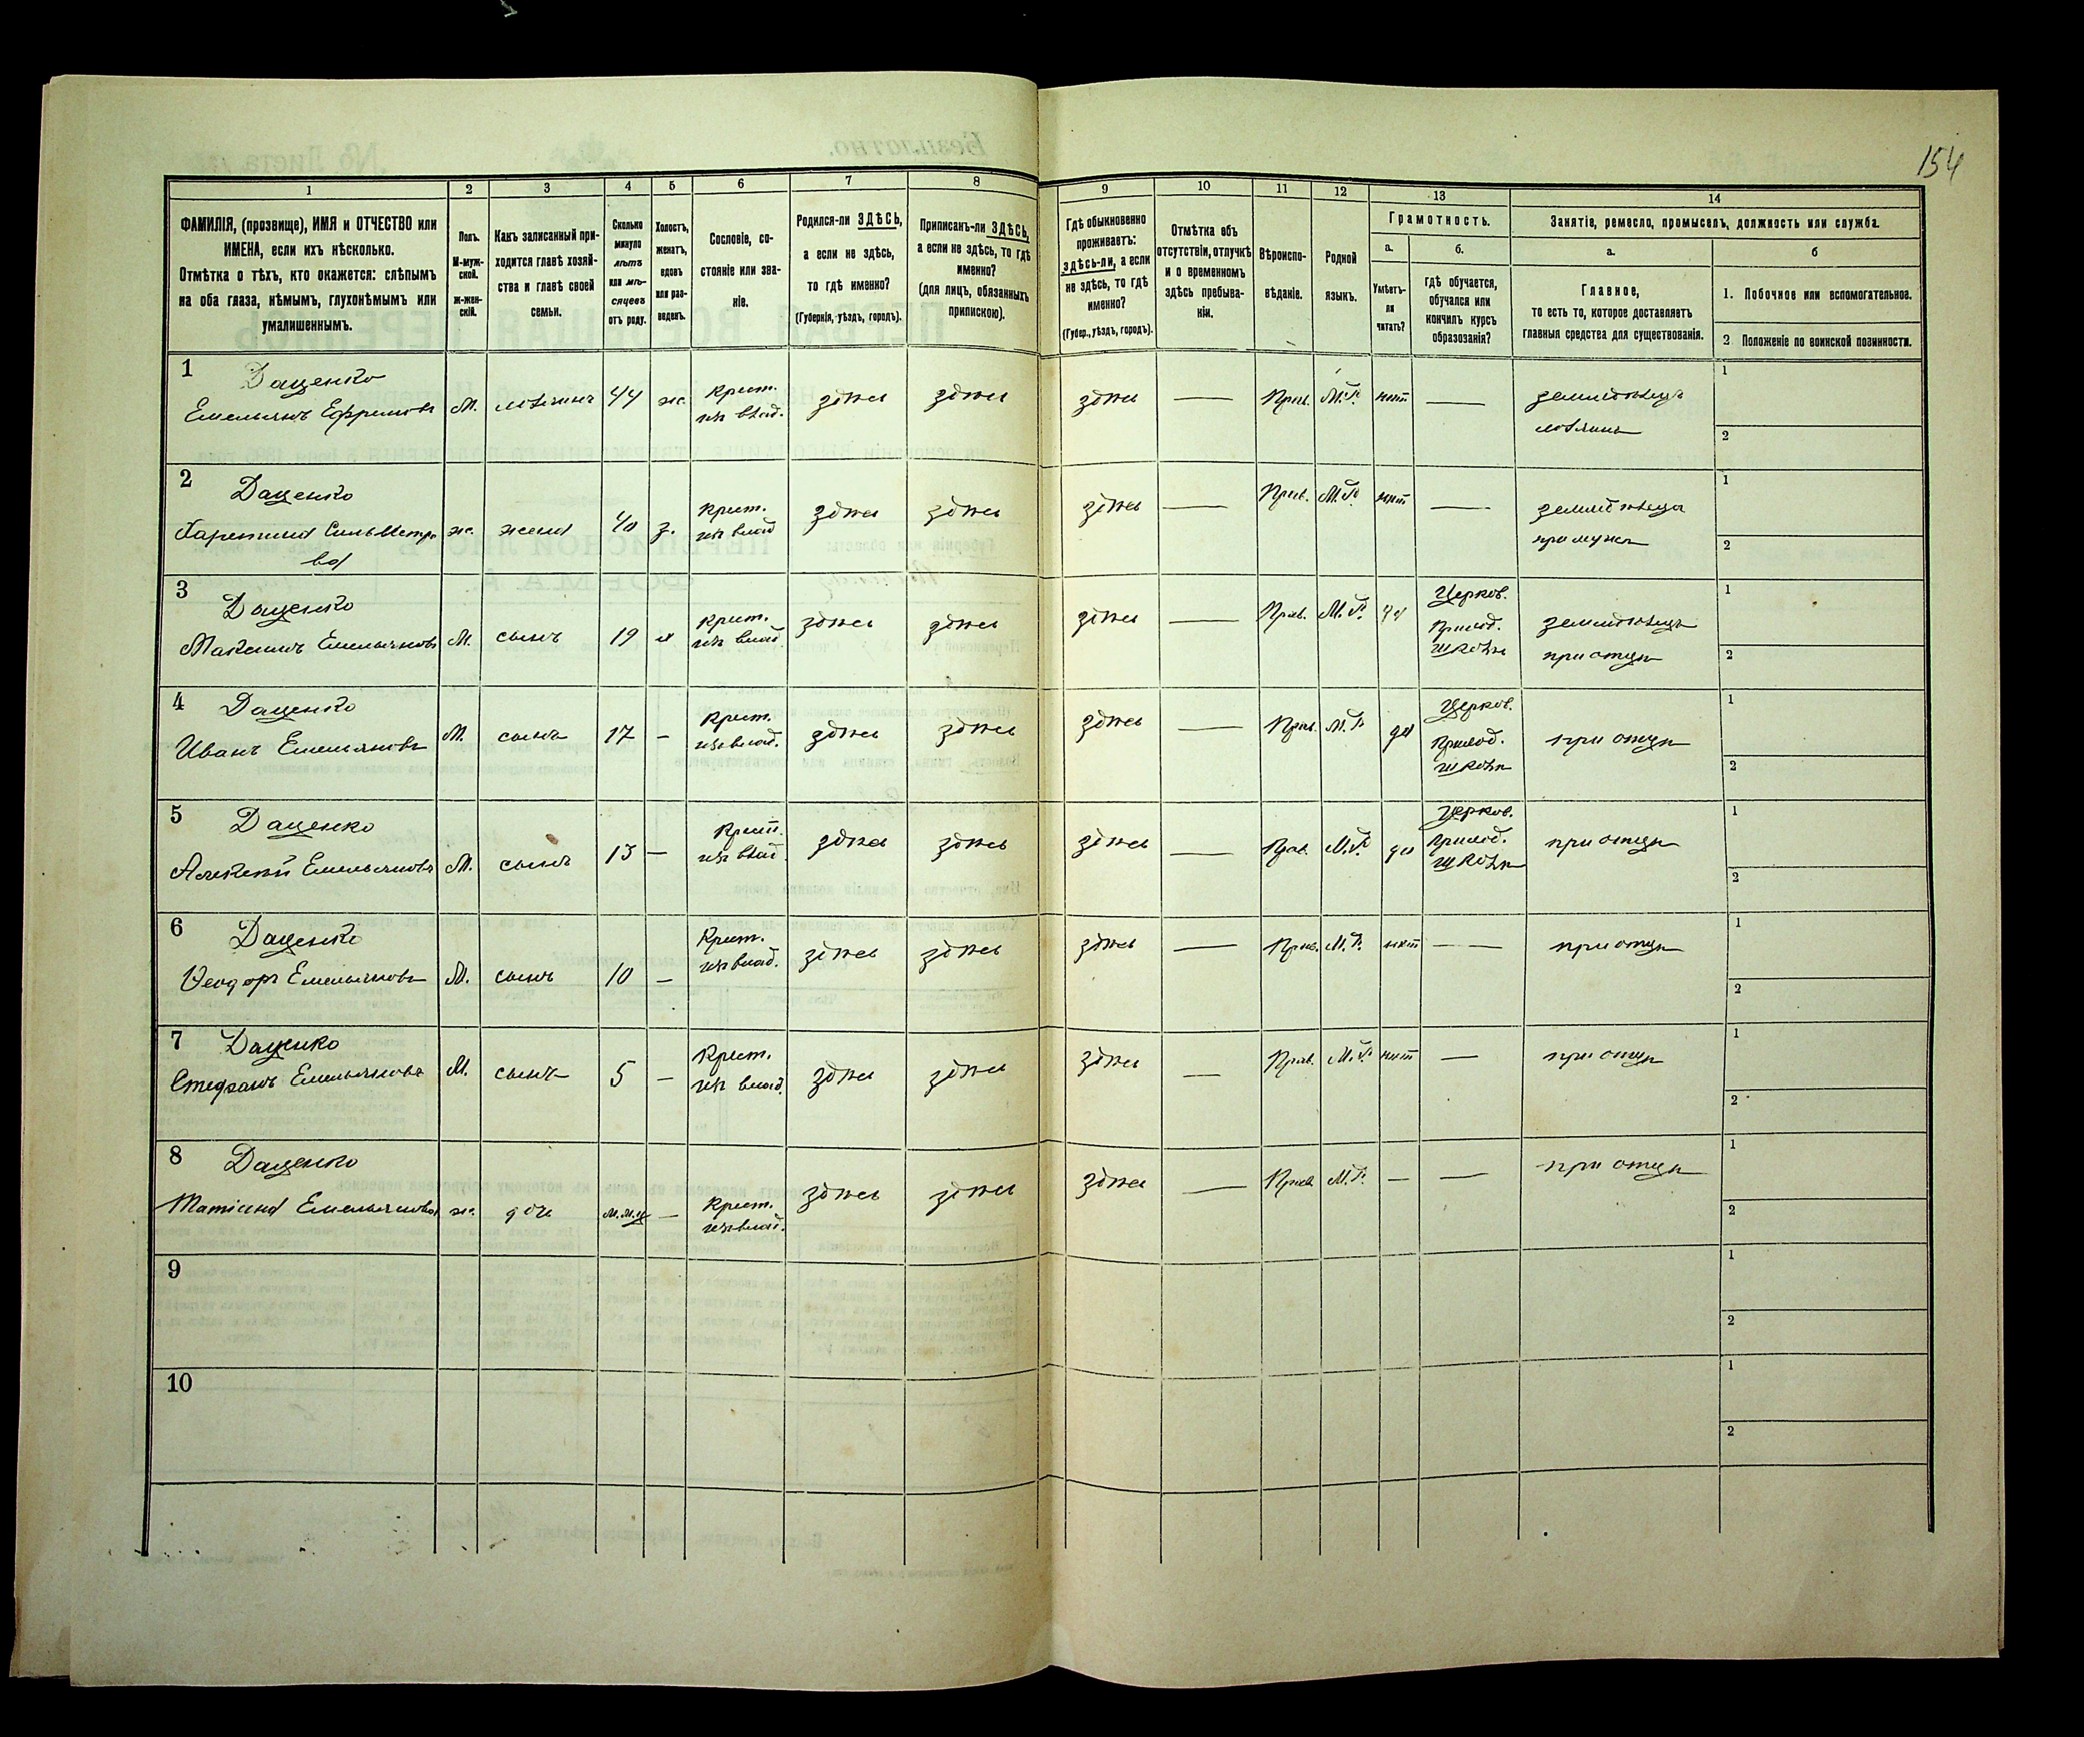 154
1
2
3
4
5
6
7
8
9
10
11
12
13
14
ФАМИЛІЯ, (прозвище), ИМЯ и ОТЧЕСТВО или
ИМЕНА, если ихъ нѣсколько.
Отмѣтка о тѣхъ, кто окажется: слѣпымъ
на оба глаза, нѣмымъ, глухонѣмымъ или
умалишеннымъ.
Полъ.
М-муж-
ской.
ж-жен-
скій.
Какъ записанный при-
ходится главѣ хозяй-
ства и главѣ своей
семьи.
Сколько
минуло
лѣтъ
или мѣ-
сяцевъ
отъ роду.
Холостъ,
женатъ,
вдовъ
или раз-
веденъ.
Сословіе, со-
стояніе или зва-
ніе.
Родился-ли ЗДѢСЬ,
а если не здѣсь,
то гдѣ именно?
(Губернія, уѣздъ, городъ).
Приписанъ-ли ЗДѢСЬ,
а если не здѣсь, то гдѣ
именно?
(для лицъ, обязанныхъ
припискою).
Гдѣ обыкновенно
проживаетъ:
здѣсь-ли, а если
не здѣсь, то гдѣ
именно?
(Губер., уѣздъ, городъ).
Отмѣтка объ
отсутствіи, отлучкѣ
и о временномъ
здѣсь пребыва-
ніи.
Вѣроиспо-
вѣданіе.
Родной
языкъ.
Грамотность.
а.
Умѣетъ-
ли
читать?
б.
гдѣ обучается,
обучался или
кончилъ курсъ
образованія?
Занятіе, ремесло, промыселъ, должность или служба.
а.
Главное,
то есть то, которое доставляетъ
главныя средства для существованія.
б
1. Побочное или вспомогательное.
2 Положеніе по воинской повинности.
1 Даценко
Емельянъ Ефримовъ М. хозяинъ 44 ж. крест. изъ влад. здѣсь здѣсь здѣсь — Прав. М.Р. нѣтъ — земледѣлецъ
хозяинъ
1
2
2 Даценко
Харетина Сильвестро
ва ж. жена 40 з. крест. изъ влад здѣсь здѣсь здѣсь — Прав. М.Р. нѣтъ — земледѣлица
при мужѣ
1
2
3 Даценко
Максимъ Емельяновъ М. сынъ 19 х крест. изъ влад. здѣсь здѣсь здѣсь — Прав. М.Р. да Церков. Приход. школѣ земледѣлецъ
при отцѣ
1
2
4 Даценко
Иванъ Емельяновъ М. сынъ 17 – крест. изъ влад. здѣсь здѣсь здѣсь — Прав. М.Р. да Церков. Приход. школѣ при отцѣ
1
2
5 Даценко
Алексѣй Емельяновъ М. сынъ 13 — Крест. изъ влад. здѣсь здѣсь здѣсь — Прав. М.Р. да Церков. Приход. школѣ при отцѣ
1
2
6 Даценко
Ѳеодоръ Емельяновъ М. сынъ 10 – Крест. изъ влад. здѣсь здѣсь здѣсь — Прав. М.Р. нѣтъ — при отцѣ
1
2
7 Даценко
Стефанъ Емельяновъ М. сынъ 5 – Крест. изъ влад. здѣсь здѣсь здѣсь — Прав. М.Р. нѣтъ — при отцѣ
1
2
8 Даценко
Татіана Емельянова ж. дочь — Крест. изъ влад. здѣсь здѣсь здѣсь — Прав М.Р. — — при отцѣ
1
2
9
1
2
10
1
2